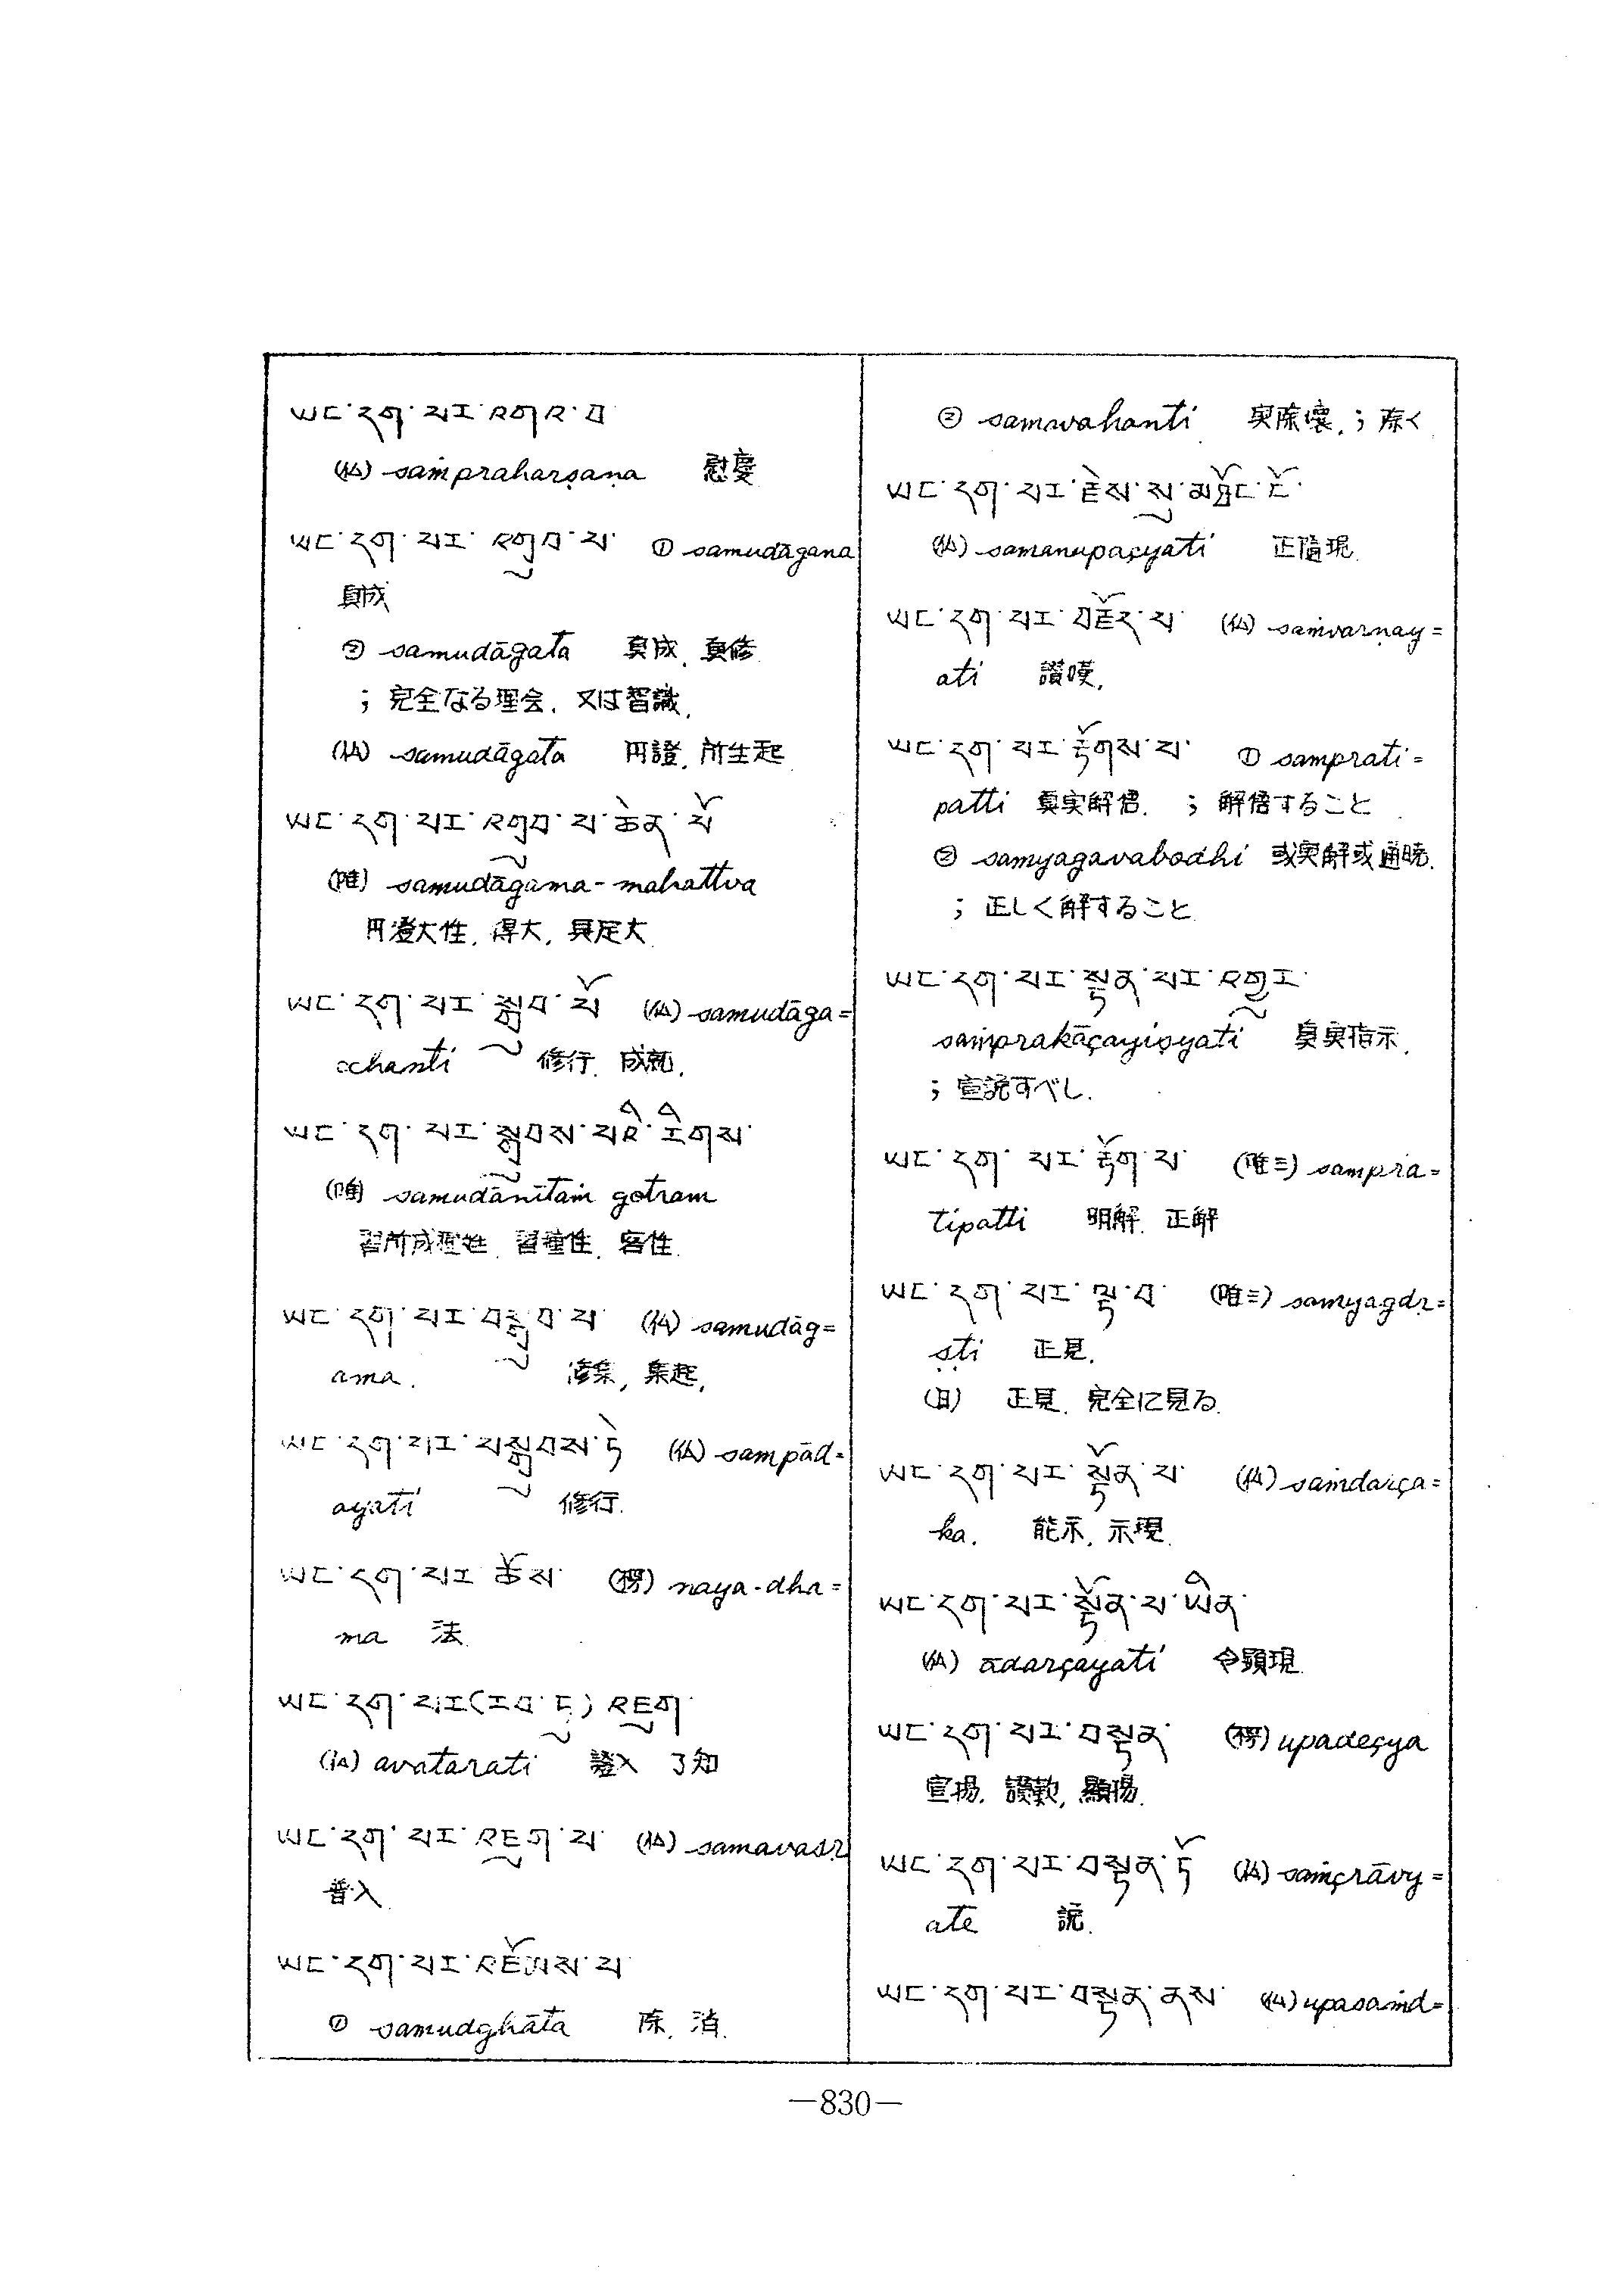 ཡང་དག་པར་དགའ་བ
(仏) saṁpraharṣaṇa 慰慶
ཡང་དག་པར་འགྲུབ་པ་ ① samudāgana
眞成
② samudāgata 真成, 真修
; 完全なる理会, 又は智識,
(仏) samudāgata 円證, 所生起
ཡང་དག་པར་འགྲུབ་པ་ཆེན་པོ
(唯) samudāgama-mahattva
円證大性, 得大, 具足大
ཡང་དག་པར་སྒྲུབ་པོ (仏) samudāga=
cchanti 修行, 成就,
ཡང་དག་པར་སྒྲུབས་པའི་རིགས་
samudānītaṁ gotram
習所成種姓, 習種性, 客性
ཡང་དག་པར་བསྒྲུབ་པ་ (仏) samudāg=
ama. 集, 集起,
ཡང་དག་པར་བསྒྲུབས་ཏེ (仏) sampād=
ayati 修行.
ཡང་དག་པར་ཆོས་ (楞) naya-dha=
ma 法
ཡང་དག་པར(རབ་ཏུ)འཇུག་
(仏) avatarati 證入 了知
ཡང་དག་པར་འཇུག་པ་ (仏) samavasṛ
普入
ཡང་དག་པར་འཇོམས་པ་
① samudghāta 除, 消.
② samavahanti 実除壊, ; 除く
ཡང་དག་པར་རྗེས་སུ་མཐོང་ངོ་
(仏) samanupaçyati 正隨現.
ཡང་དག་པར་བརྗོད་པ་ (仏) saṁvarṇay=
ati 讃嘆,
ཡང་དག་པར་རྟོགས་པ་ ① samprati=
patti 真実解悟. ; 解悟すること
② samyagavabodhi 或実解或通暁.
; 正しく解すること
ཡང་དག་པར་སྟན་པར་འགྱུར་
saṁprakāçayiṣyati 真実指示,
; 宣説すべし.
ཡང་དག་པར་རྟོག་པ་ (唯三) sampra=
tipatti 明解, 正解
ཡང་དག་པར་ལྟ་བ་ (唯三) samyagdṛ=
ṣṭi 正見,
(日) 正見, 完全に見る
ཡང་དག་པར་སྟོན་པ་ (仏) saṁdarça=
ka. 能示, 示現
ཡང་དག་པར་སྟོན་པ་ཡིན་
(仏) ādarçayati 令顕現
ཡང་དག་པར་བསྟན་ (楞) upadeçya
宣揚, 讃歎, 顯揚.
ཡང་དག་པར་བསྟན་ཏོ (仏) saṁçrāvy=
ate 説.
ཡང་དག་པར་བསྟན་ནས་ (仏) upasaṁd=
—830—